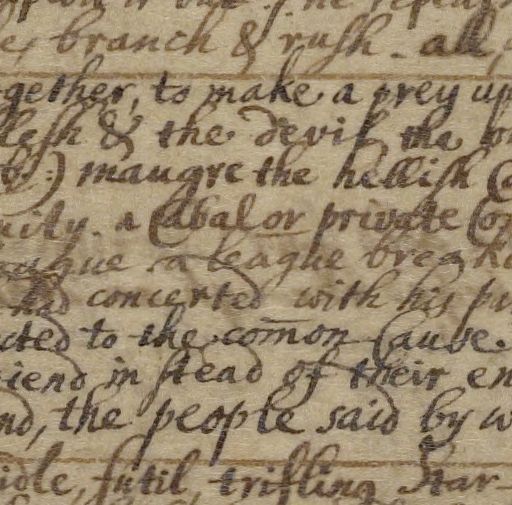 branch & rush. all,
gether, to make a prey up
flesh & the devil the
) maugre the hellish
nity. a Cabal or private Co
league a league break
had concerted with his p
cted to the com̄on Cause.
riend in stead of their en
nd, the people said by w
idle, futil, trifling